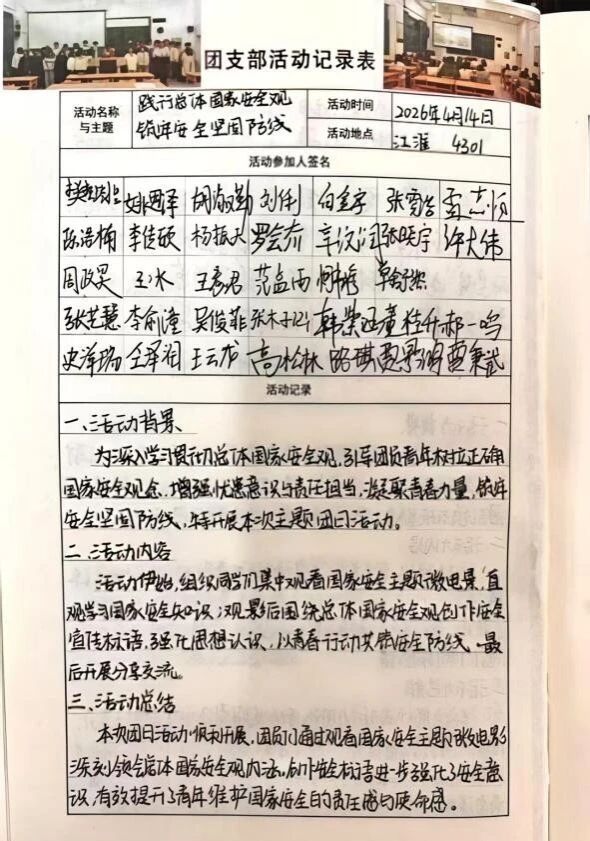 团支部活动记录表
活动名称与主题 践行总体国家安全观 筑牢安全坚固防线
活动时间 2026年4月14日
活动地点 江淮 4301
活动参加人签名
姚 胡淑勤 刘伟 白金宇 张 孟志
陈浩楠 李佳硕 杨振天 罗会 张 宁 许大伟
周政昊 王冰 王 君 范孟雨
张芷慧 李俞潼 吴俊菲 张木子 韩紫 董桂 郝一鸣
史泽瑞 仝泽润 王云龙 高松林 路琪 贾 贾秉武
活动记录
一、活动背景
为深入学习贯彻总体国家安全观,引导团员青年树立正确
国家安全观念,增强忧患意识与责任担当,凝聚青春力量,筑牢
安全坚固防线,特开展本次主题团日活动。
二、活动内容
活动伊始,组织同学们集中观看国家安全主题微电影,直
观学习国家安全知识;观影后围绕总体国家安全观创作安全
宣传标语,强化思想认识,以青春行动共筑安全防线,最
后开展分享交流。
三、活动总结
本次团日活动顺利开展,团员们通过观看国家安全主题微电影
深刻领会总体国家安全观内涵,创作安全标语进一步强化了安全意
识,有效提升了青年维护国家安全的责任感与使命感。